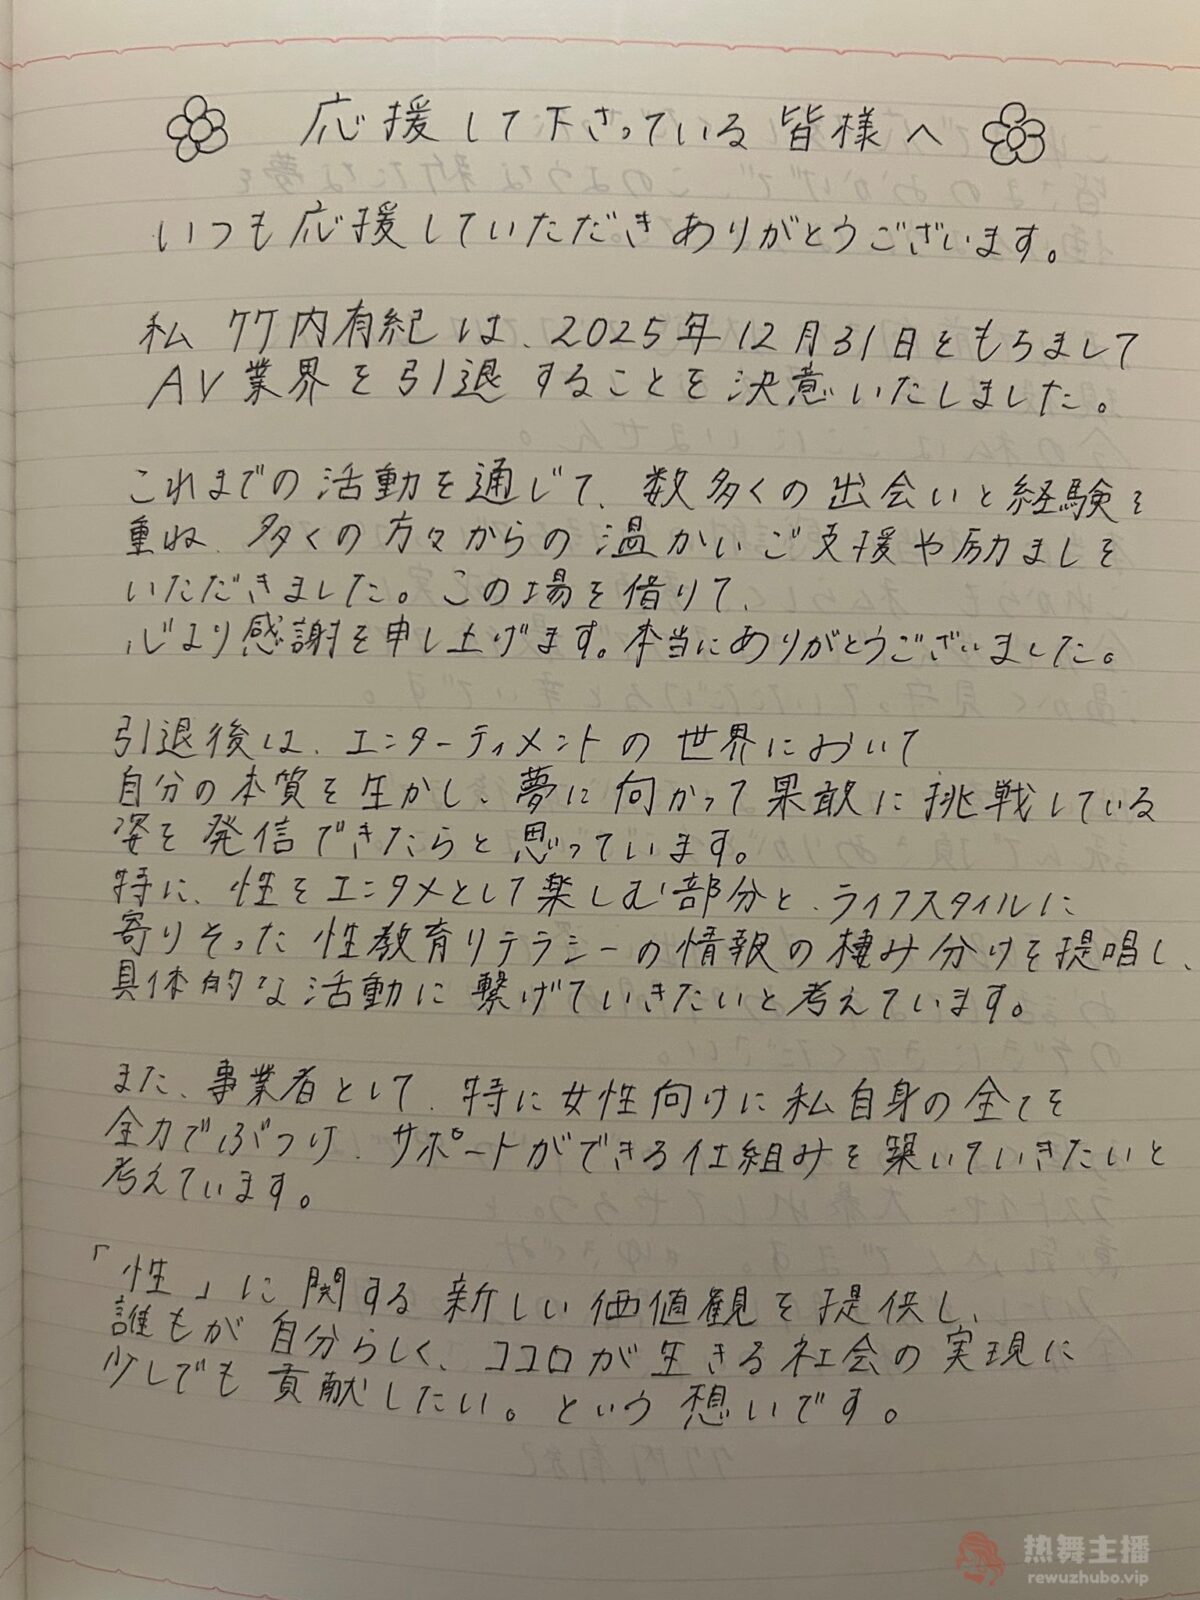 応援して下さっている皆様へ
いつも応援していただきありがとうございます。
私 竹内有紀は、2025年12月31日をもちまして
AV業界を引退することを決意いたしました。
これまでの活動を通じて、数多くの出会いと経験を
重ね、多くの方々からの温かいご支援や励ましを
いただきました。この場を借りて、
心より感謝を申し上げます。本当にありがとうございました。
引退後は、エンターティメントの世界において
自分の本質を生かし、夢に向かって果敢に挑戦している
姿を発信できたらと思っています。
特に、性をエンタメとして楽しむ部分と、ライフスタイルに
寄りそった性教育リテラシーの情報の棲み分けを提唱し、
具体的な活動に繋げていきたいと考えています。
また、事業者として、特に女性向けに私自身の全てを
全力でぶつけ、サポートができる仕組みを築いていきたいと
考えています。
「性」に関する新しい価値観を提供し、
誰もが自分らしく、ココロが生きる社会の実現に
少しでも貢献したい。という想いです。
热舞主播
rewuzhubo.vip